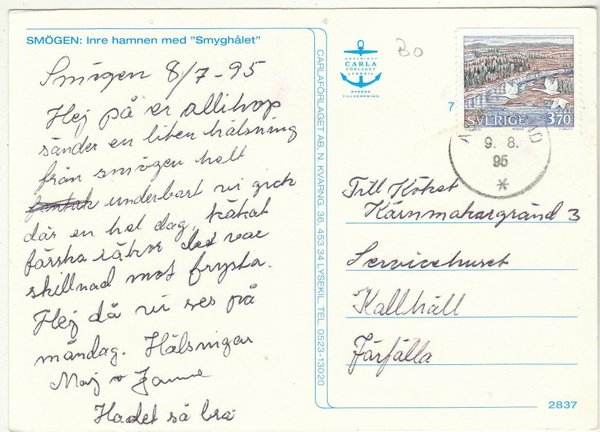 SMÖGEN: Inre hamnen med "Smyghålet"
Smögen 8/7-95
Hej på er allihop
sänder en liten hälsning
från smögen helt
underbart vi gick
där en hel dag, käkat
färska räkor det var
skillnad mot frysta.
Hej då vi ses på
måndag. Hälsningar
Maj o Janne
Hadet så bra
CARLAFÖRLAGET AB, N. KVARNG. 36, 453 34 LYSEKIL. TEL 0523-13020
COPYRIGHT
CARLA
FÖRLAGET
LYSEKIL
SVENSK
TILLVERKNING
Bo
7
SVERIGE 3,70
9. 8.
95
Till Köket
Kärnmakargränd 3
Servicehuset
Kallhäll
Järfälla
2837